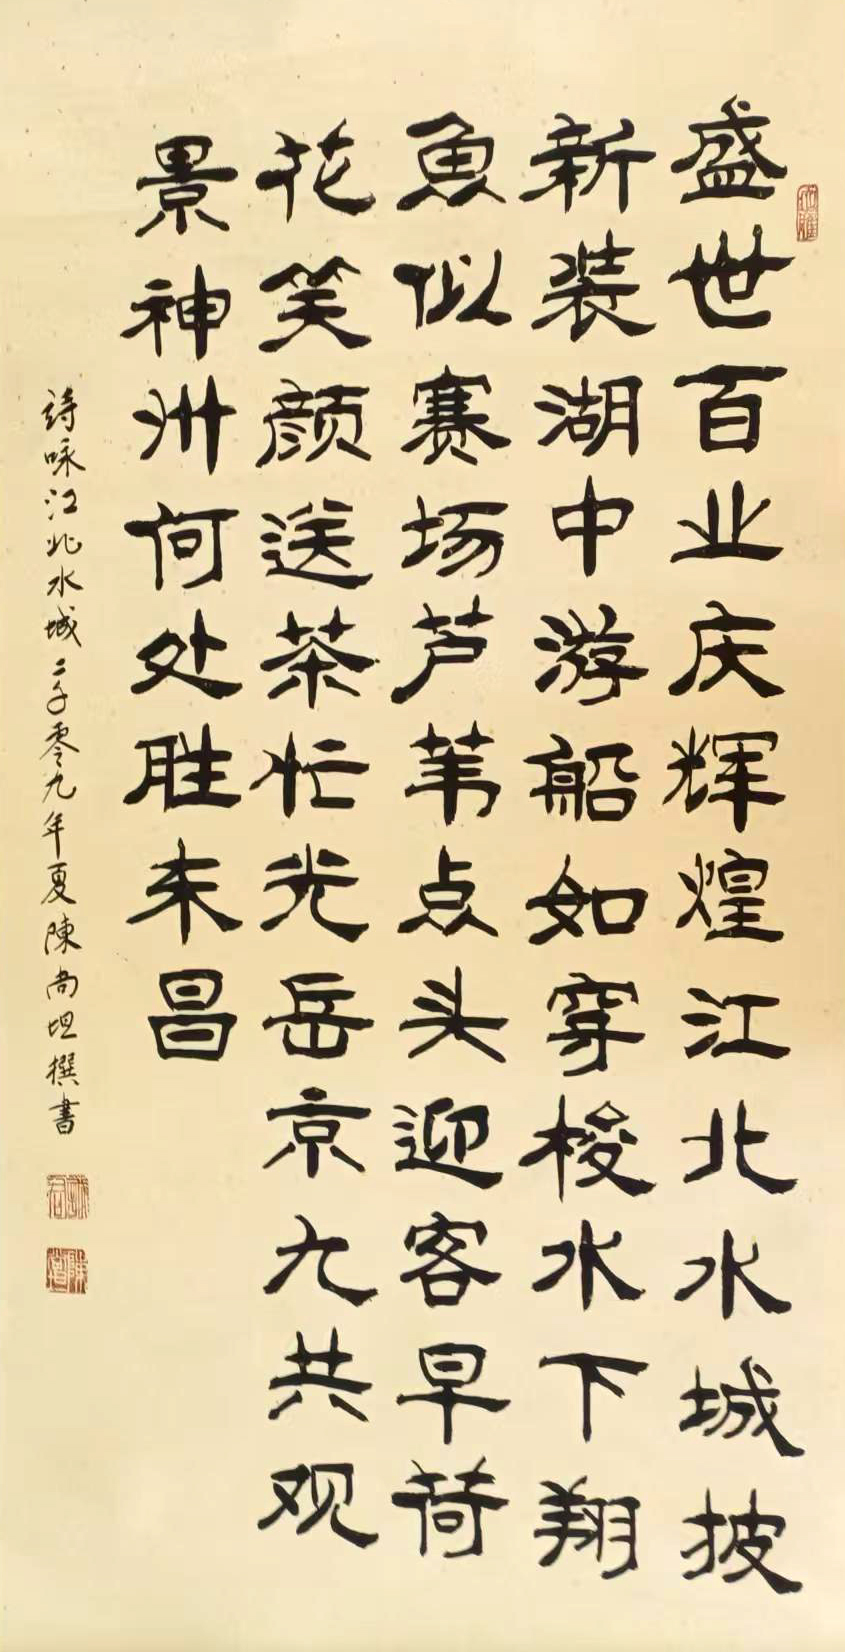 盛世百业庆辉煌江北水城披
新装湖中游船如穿梭水下翔
魚似赛场芦苇点头迎客早荷
花笑颜送茶忙光岳京九共观
景神州何处胜东昌
詩咏江北水城二〇零九年夏陳尚坦撰書